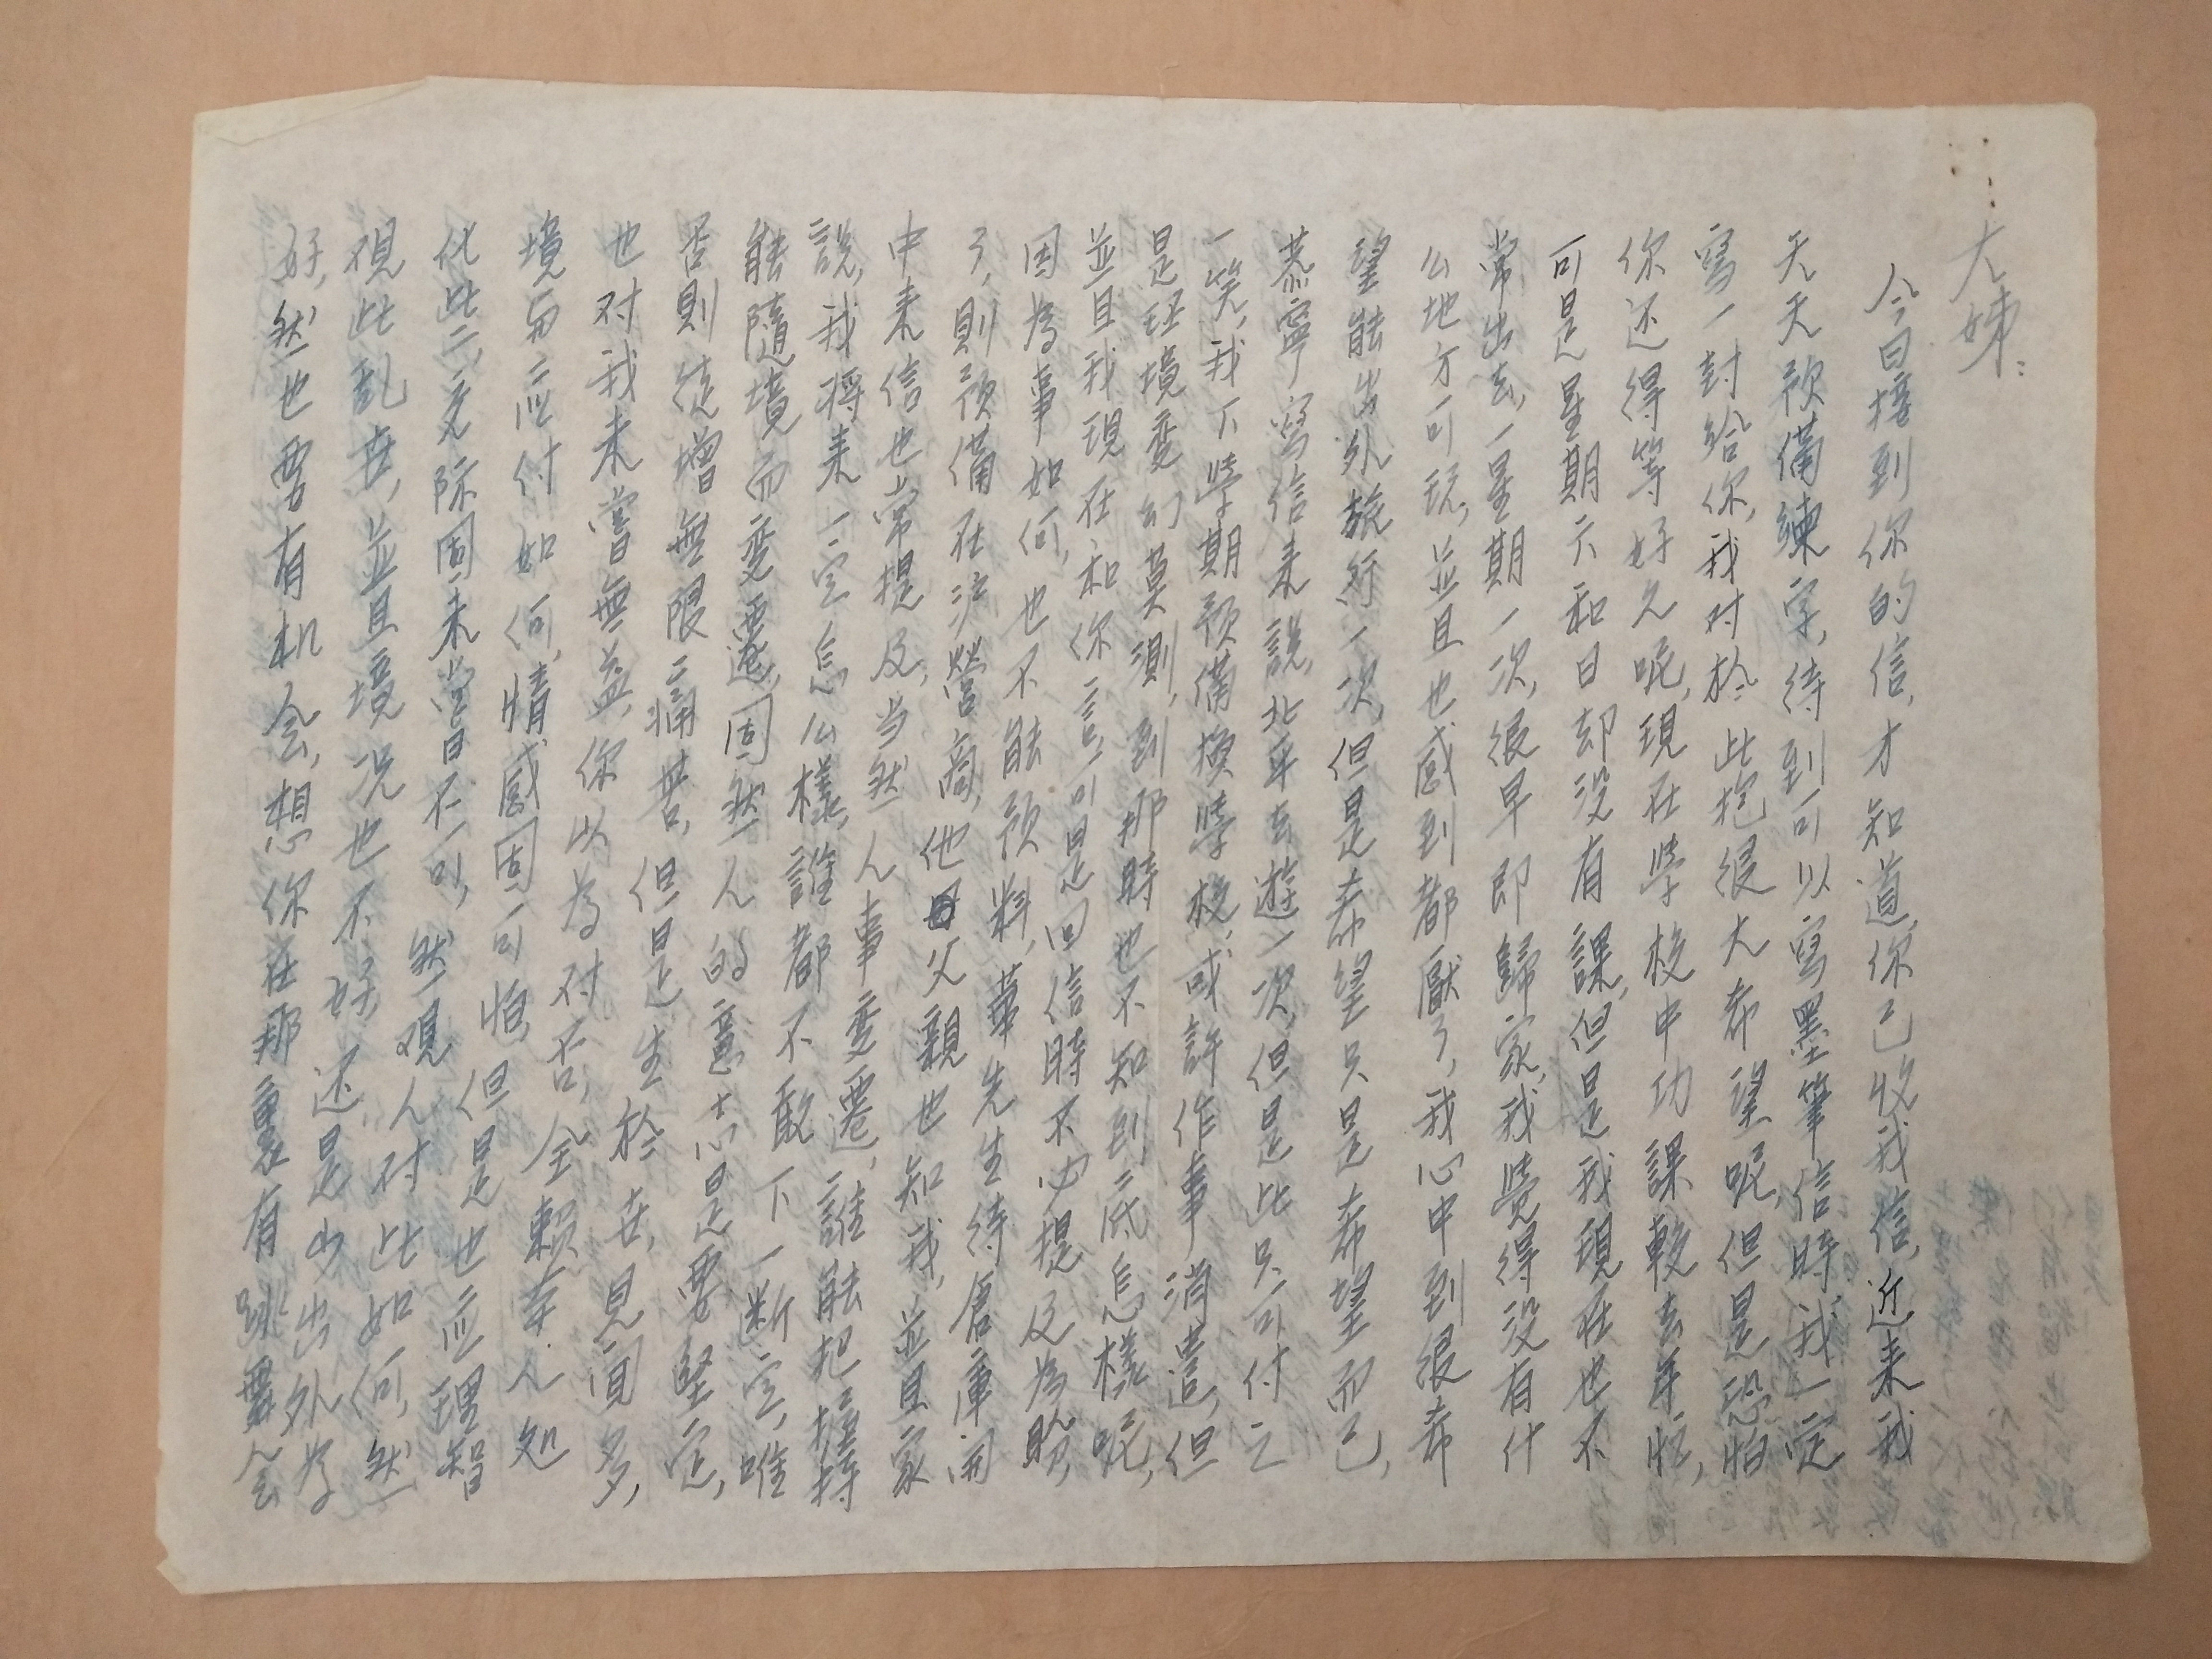 大姊：
今日接到你的信，才知道你已收我信，近来我
天天預備練字，待到可以寫墨筆信時，我一定
寫一封給你，我对於此抱很大希望呢，但是恐怕
你还得等好久呢，現在学校中功課較去年忙，
可是星期六和日却没有課，但是我現在也不
常出去，一星期一次，很早即歸家，我覺得没有什
么地方可玩，並且也感到都厭了，我心中到很希
望能出外旅行一次，但是希望只是希望而已，
慕寧寫信来説，北平去遊一次，但是此只可付之
一笑，我下学期預備換学校，或許作事消遣，但
是环境变幻莫測，到那時也不知到底怎樣呢，
並且我現在和你言，可是回信時不必提及為盼，
因為事如何，也不能預料，華先生待倉庫開
了，則預備在沪營商，他父親也知我，並且家
中来信也常提及，当然人事变遷，誰能把握持
説，我将来一定怎么樣，誰都不敢下一断定，唯
能隨境而变遷，固然人的意志是要堅定，
否則徒增無限痛苦，但是生於世，見面多，
也对我未嘗無益，你以為对否，全賴吾人处
境与应付如何，情感固可怕，但是也应理智
化此二交际固未嘗不可，然观人对此如何，然
視此乱世，並且境況也不好，还是少出外为
好，然也要有机会，想你在那裏有跳舞会